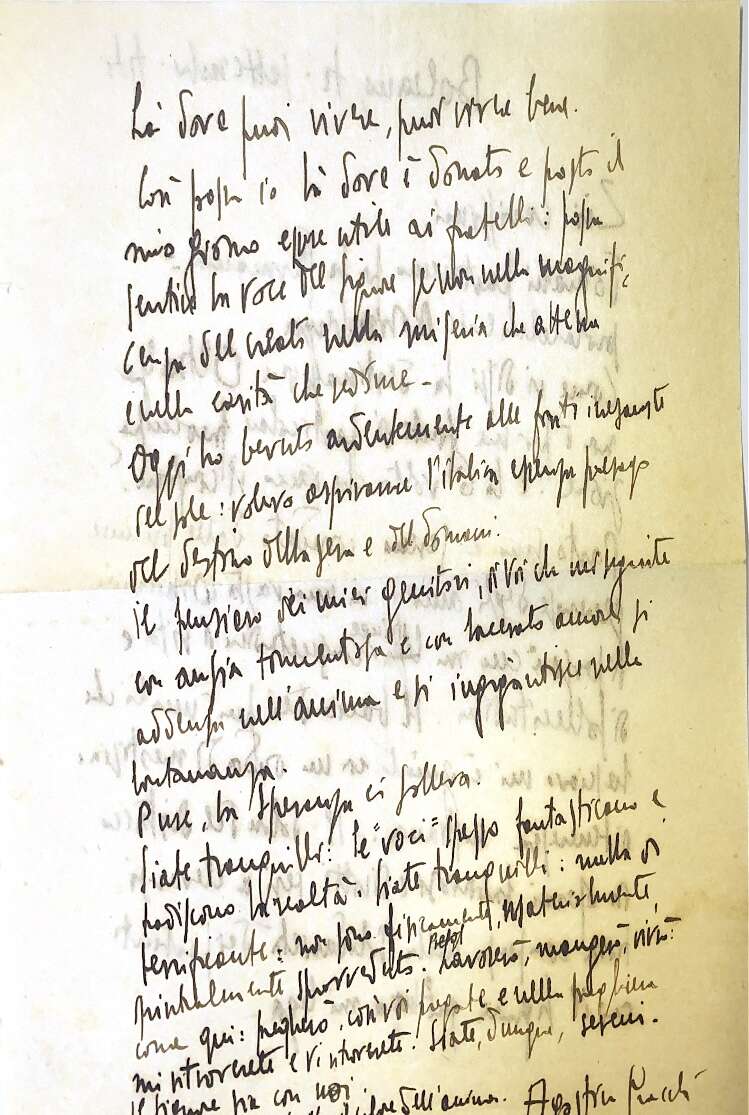 Là dove puoi vivere, puoi vivere bene.
Così possa io là dove è donato e posto il
mio giorno essere utile ai fratelli: possa
sentire la voce del Signore se non nella magnifi-
cenza del creato nella miseria che attenua
e nella carità che redime -
Oggi ho bevuto ardentemente alle fonti incessate
del sole: volevo aspirarne l'italica essenza presago
del destino della sera e del domani.
Il pensiero dei miei genitori, di voi che mi seguite
con ansia tormentosa e con lacerato amore si
addensa nell'anima e si ingigantisce nella
lontananza.
Pure, la Speranza ci solleva.
Siate tranquilli: le "voci" spesso fantasticano e
tradiscono la realtà. Siate tranquilli: nulla di
terrificante: non sono fisicamente, materialmente,
spiritualmente sprovveduto. Lavorerò, mangerò, vivrò
come qui: pregherò, con voi pregate e nella preghiera
mi ritroverete e vi ritroverete. Siate, dunque, sereni.
Il Signore sia con noi.
dell'anima.